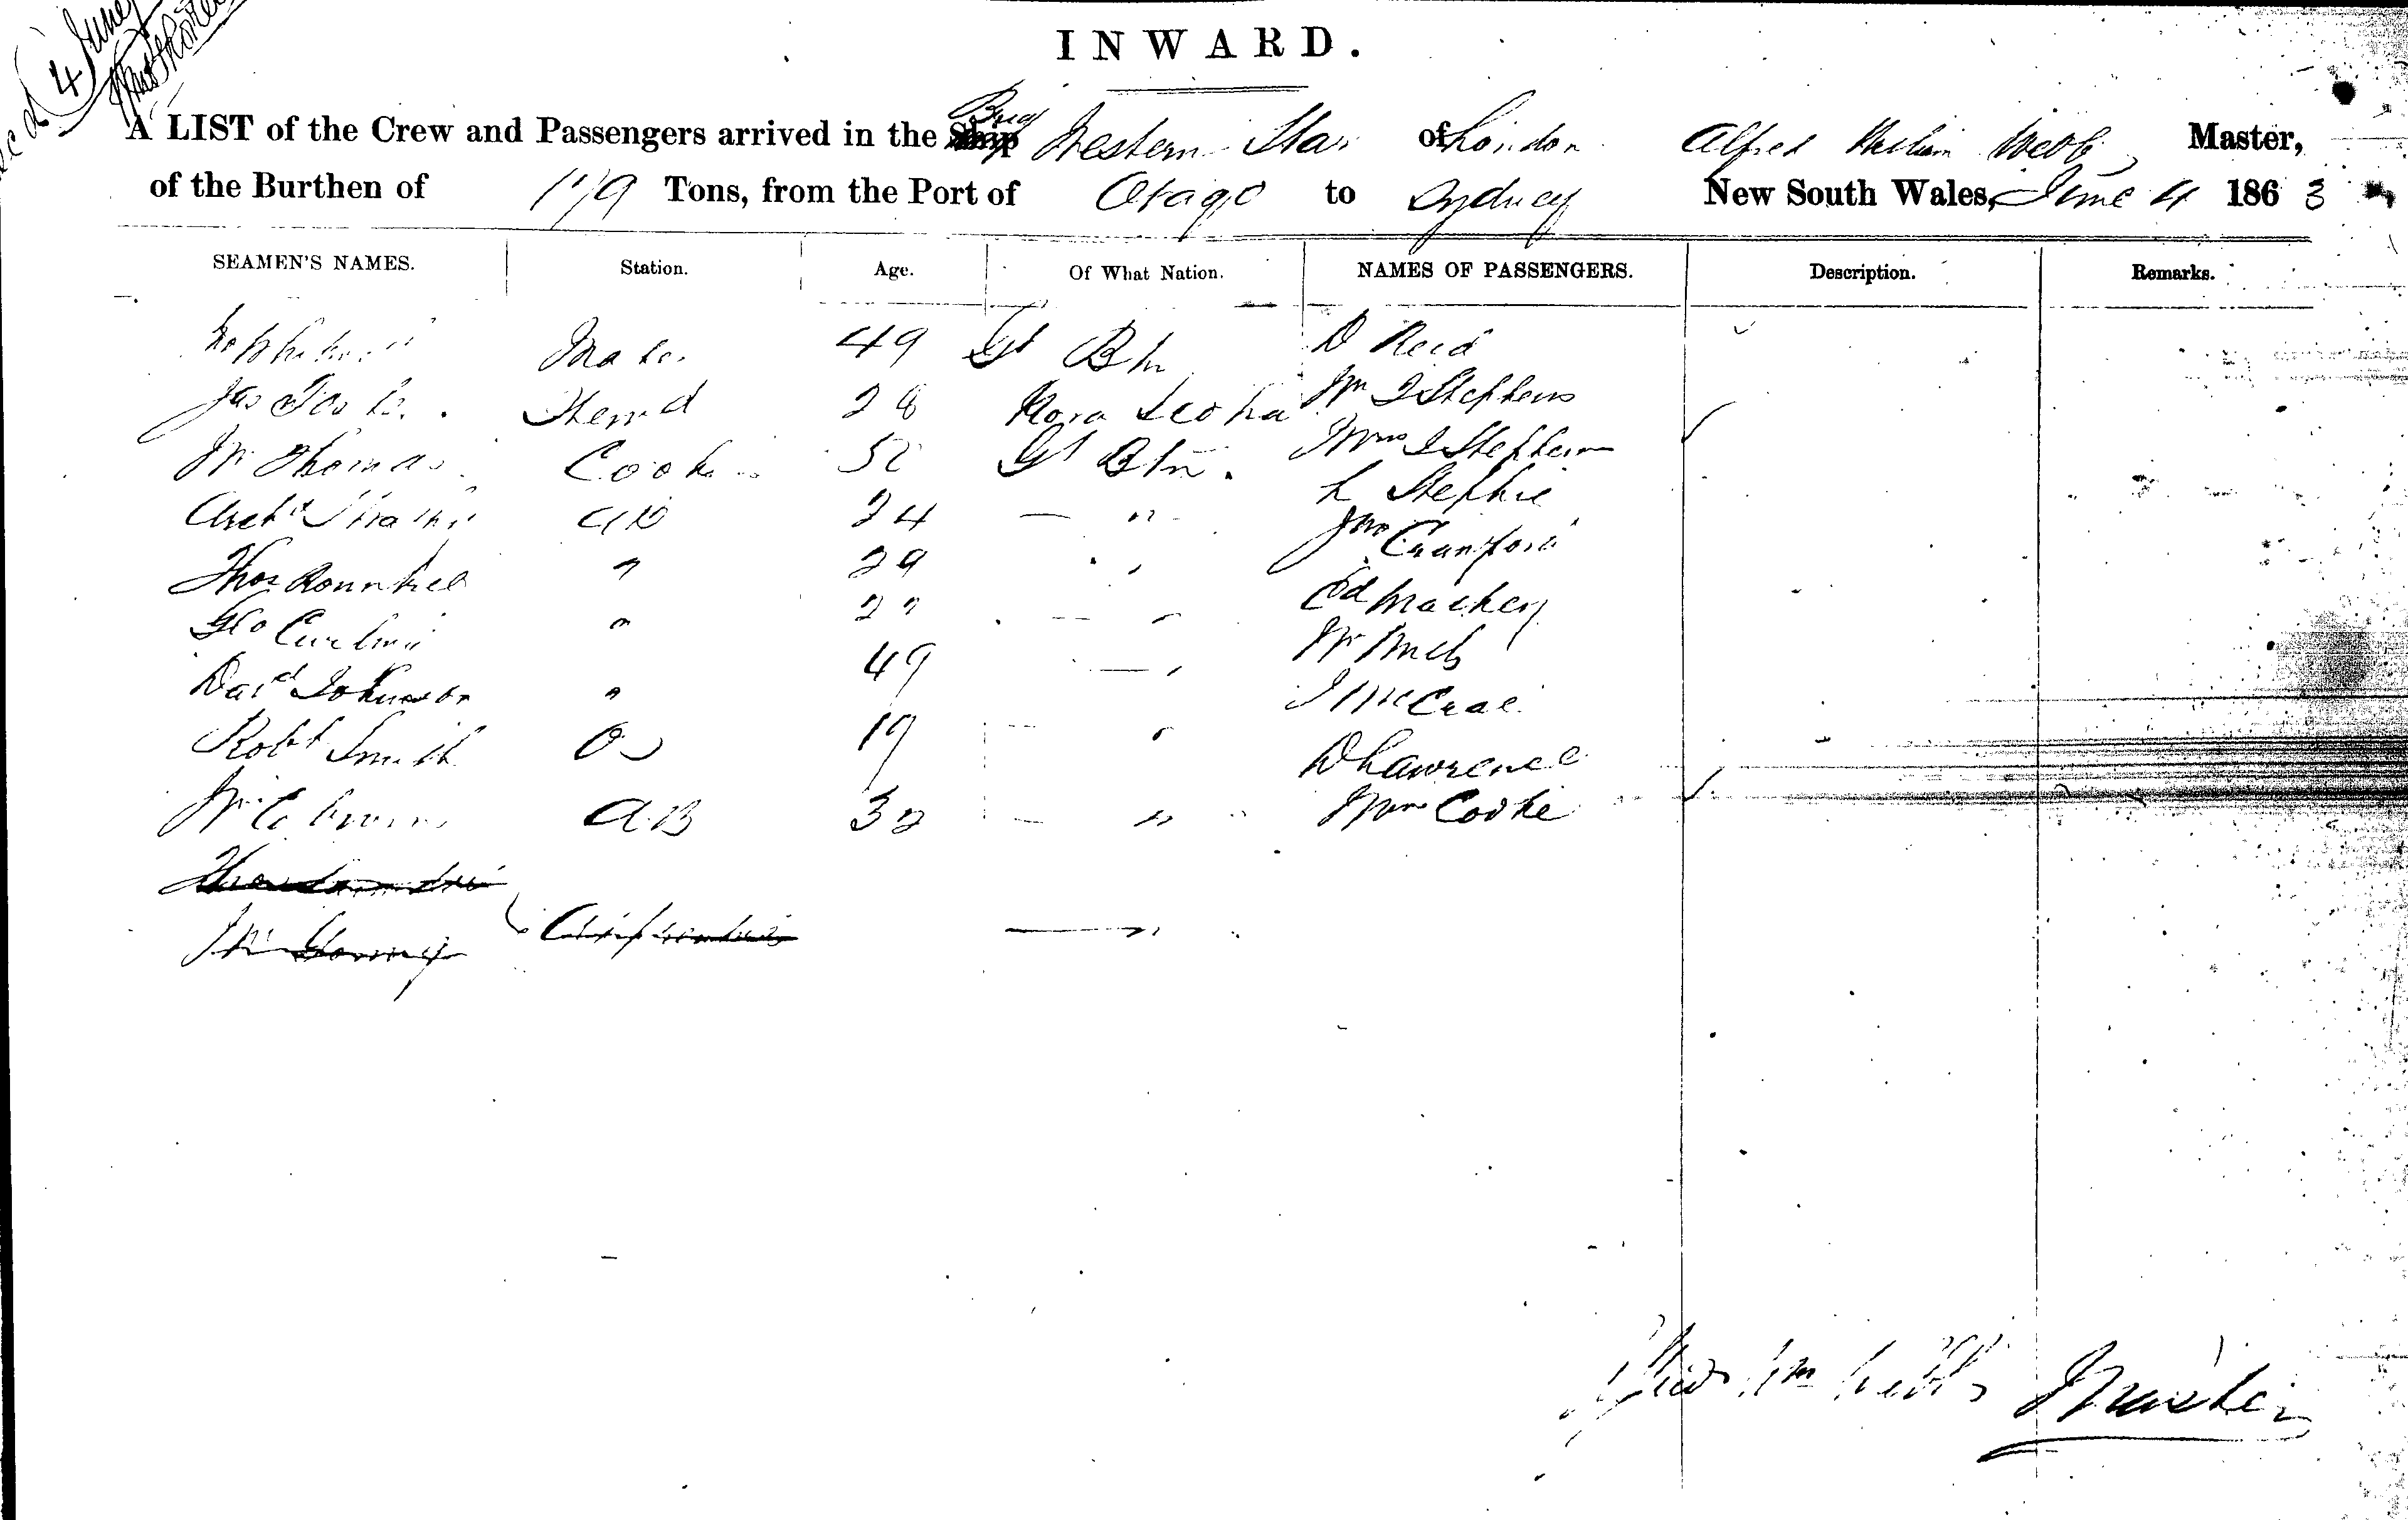 4 June
INWARD.
A LIST of the Crew and Passengers arrived in the Ship Brig Western Star of London Alfred William Webb, Master,
of the Burthen of 179 Tons, from the Port of Otago to Sydney New South Wales, June 4 1863
SEAMEN'S NAMES. Station. Age. Of What Nation. NAMES OF PASSENGERS. Description. Remarks.
Mate 49 Gt Btn D Reid
Jas Stewd 28 Nova Scotia Mr J Stephens
Wm Thomas Cook 52 Gt Btn. Mrs J Stephens
Archd AB 24 — " L Stephie
Thos " 29 " Jno Cranford
Geo " 27 — " Ed Mackey
Davd Johnson " 49 — " Wm
Robt Smith OS 19 " J McCrae
Wm AB 32 — " D Lawrence
Mrs Cooke
Thos
— "
Alfred Wm Webb, Master